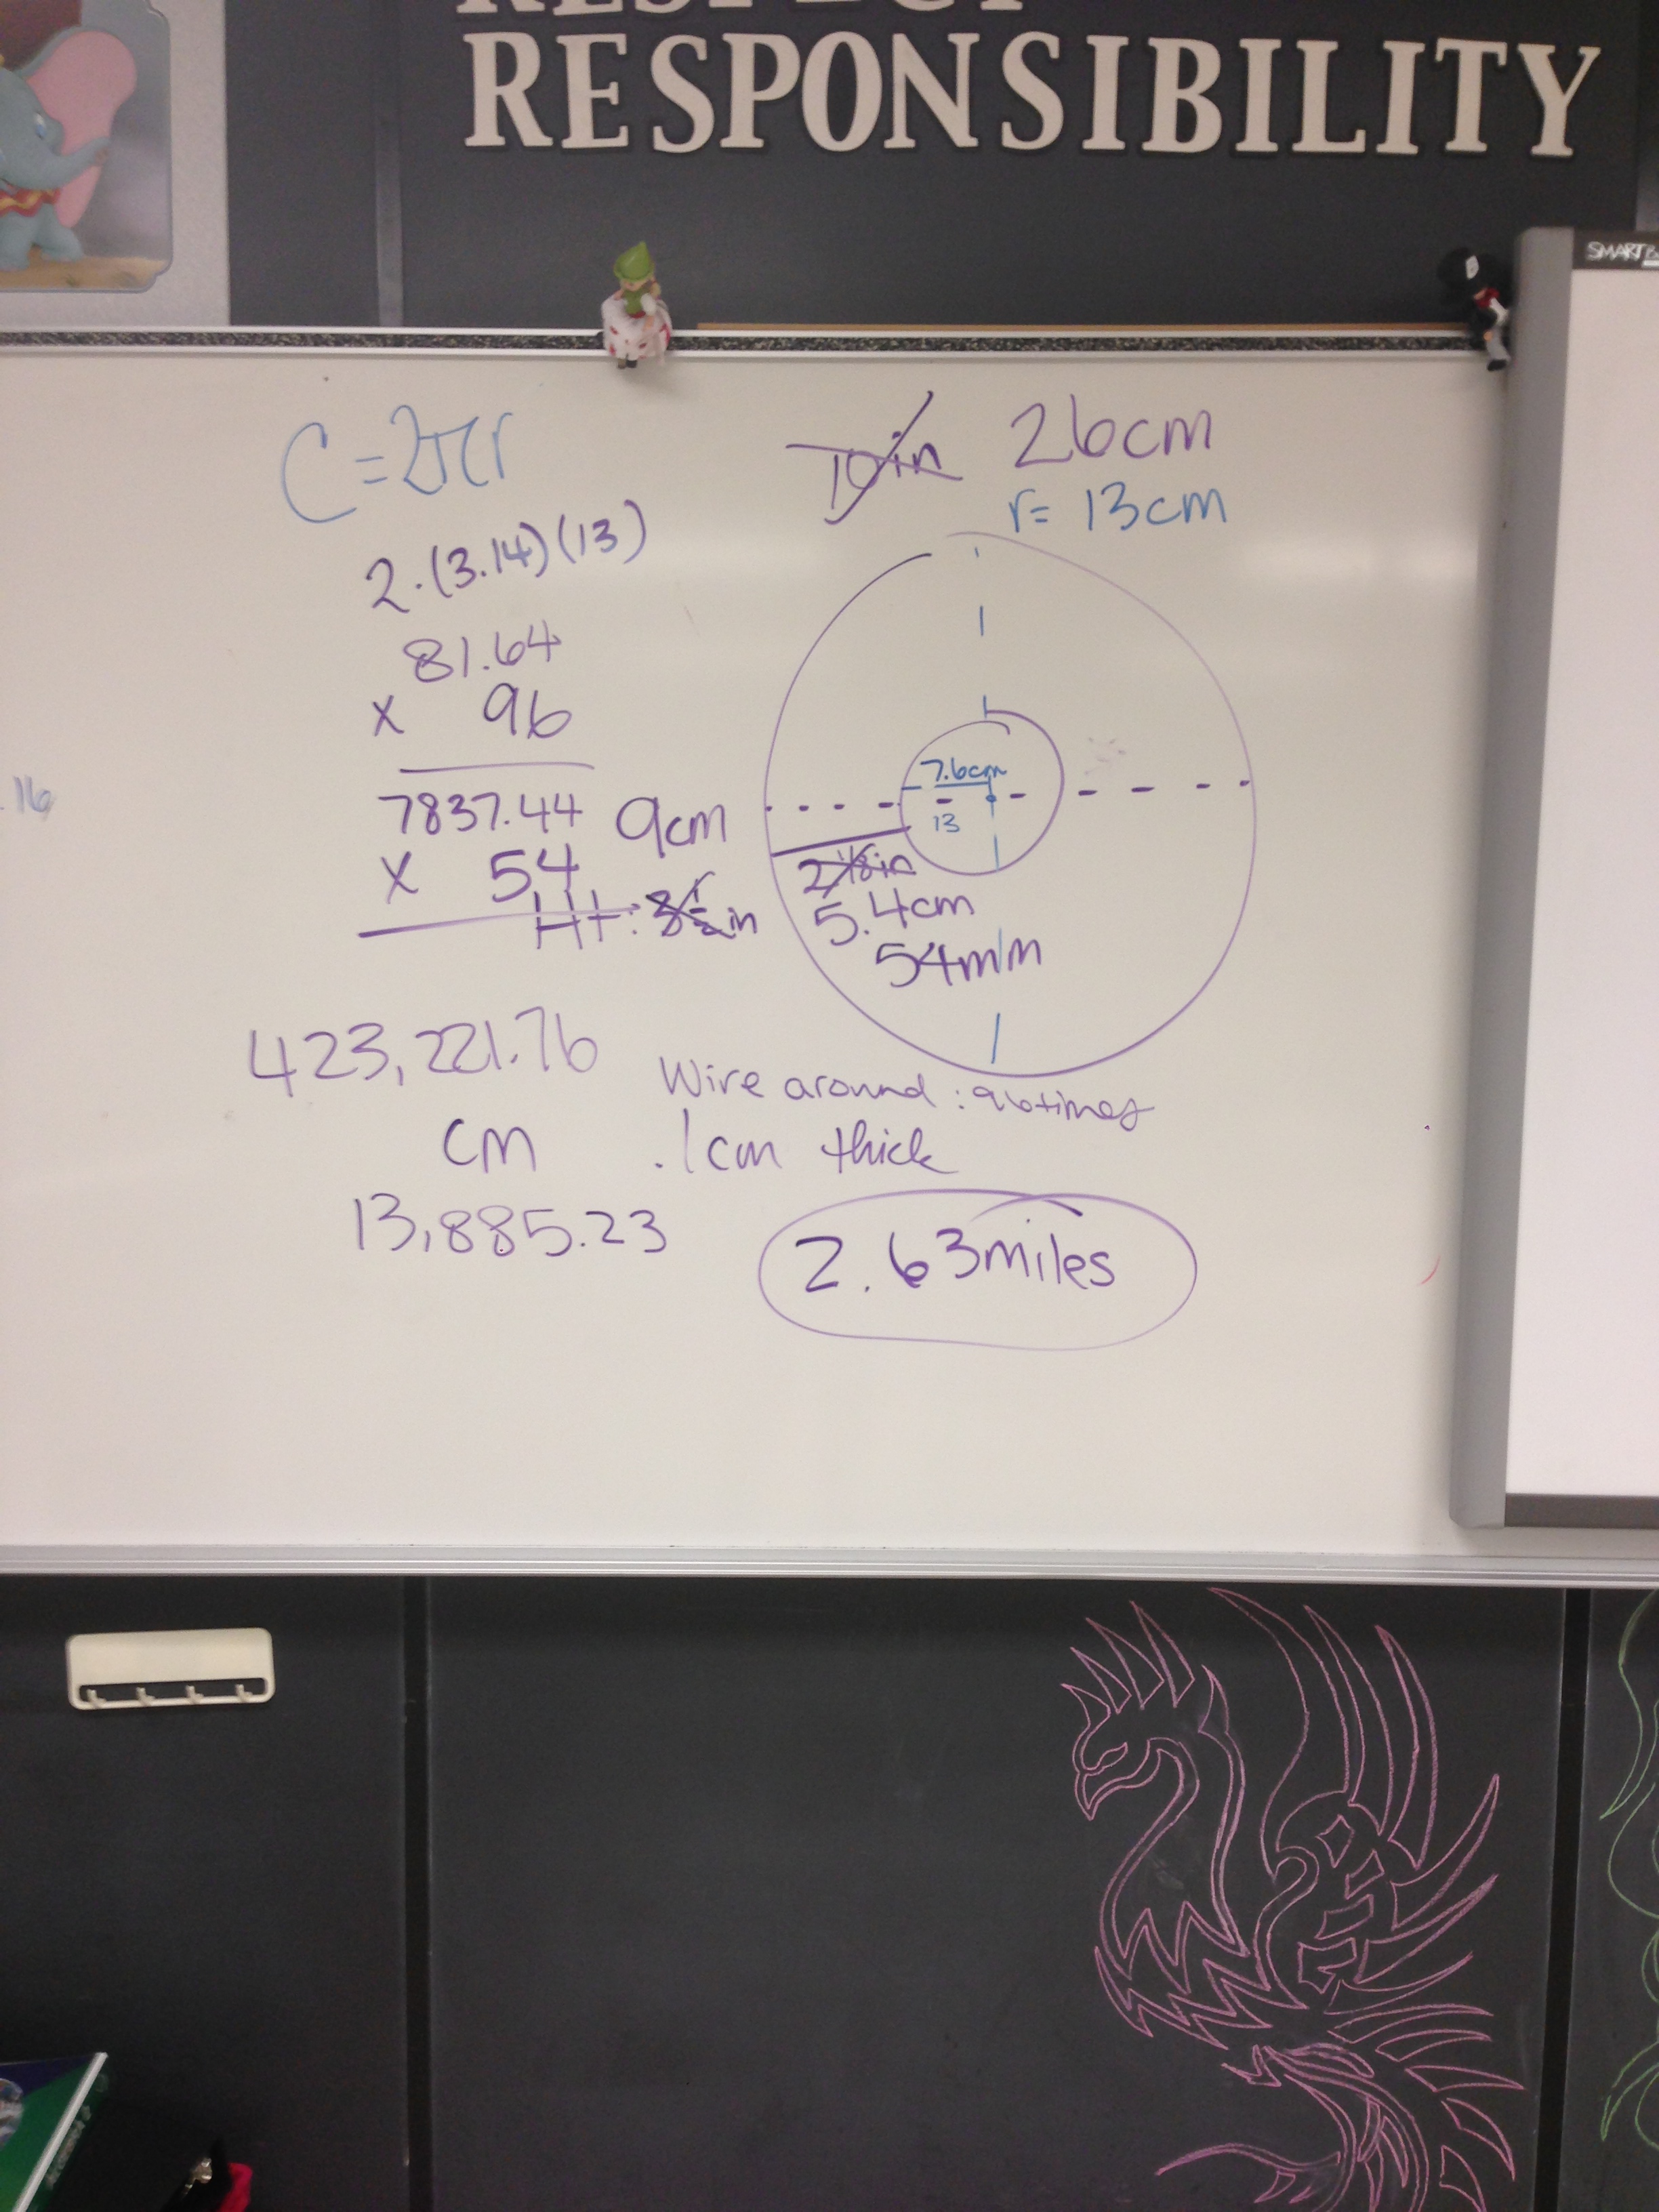 RESPECT
RESPONSIBILITY
SMART
C=2πr
2·(3.14)(13)
81.64
x 96
7837.44
x 54
9cm
Ht: 3½in
423,221.76
cm
13,885.23
10in 26cm
r= 13cm
7.6cm
13
2⅛in
5.4cm
54mm
Wire around: 96times
.1cm thick
2.63miles
.16